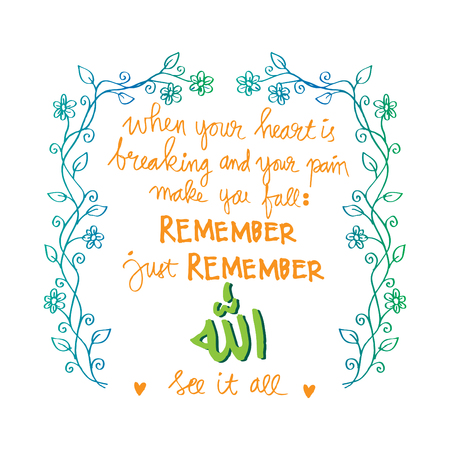 when your heart is
breaking and your pain
make you fall:
REMEMBER
just REMEMBER
الله
see it all